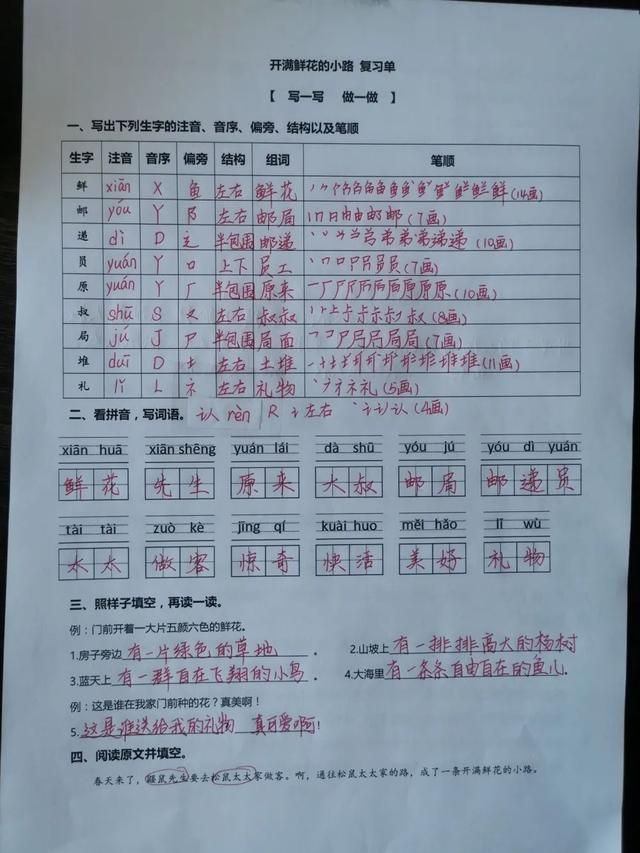 开满鲜花的小路 复习单
【 写一写 做一做 】
一、写出下列生字的注音、音序、偏旁、结构以及笔顺
生字 注音 音序 偏旁 结构 组词 笔顺
鲜 xiān X 鱼 左右 鲜花 (14画)
邮 yóu Y 阝 左右 邮局 (7画)
递 dì D 辶 半包围 邮递 (10画)
员 yuán Y 口 上下 员工 (7画)
原 yuán Y 厂 半包围 原来 (10画)
叔 shū S 又 左右 叔叔 (8画)
局 jú J 尸 半包围 局面 (7画)
堆 duī D 土 左右 土堆 (11画)
礼 lǐ L 礻 左右 礼物 (5画)
二、看拼音，写词语。 认 rèn R 讠 左右 (4画)
xiān huā xiān shēng yuán lái dà shū yóu jú yóu dì yuán
鲜花 先生 原来 大叔 邮局 邮递员
tài tài zuò kè jīng qí kuài huo měi hǎo lǐ wù
太太 做客 惊奇 快活 美好 礼物
三、照样子填空，再读一读。
例：门前开着一大片五颜六色的鲜花。
1.房子旁边 有一片绿色的草地 。 2.山坡上 有一排排高大的杨树
3.蓝天上 有一群自在飞翔的小鸟 。 4.大海里 有一条条自由自在的鱼儿 。
例：这是谁在我家门前种的花？真美啊！
5. 这是谁送给我的礼物 真可爱啊！
四、阅读原文并填空。
春天来了，鼹鼠先生要去松鼠太太家做客。啊，通往松鼠太太家的路，成了一条开满鲜花的小路。